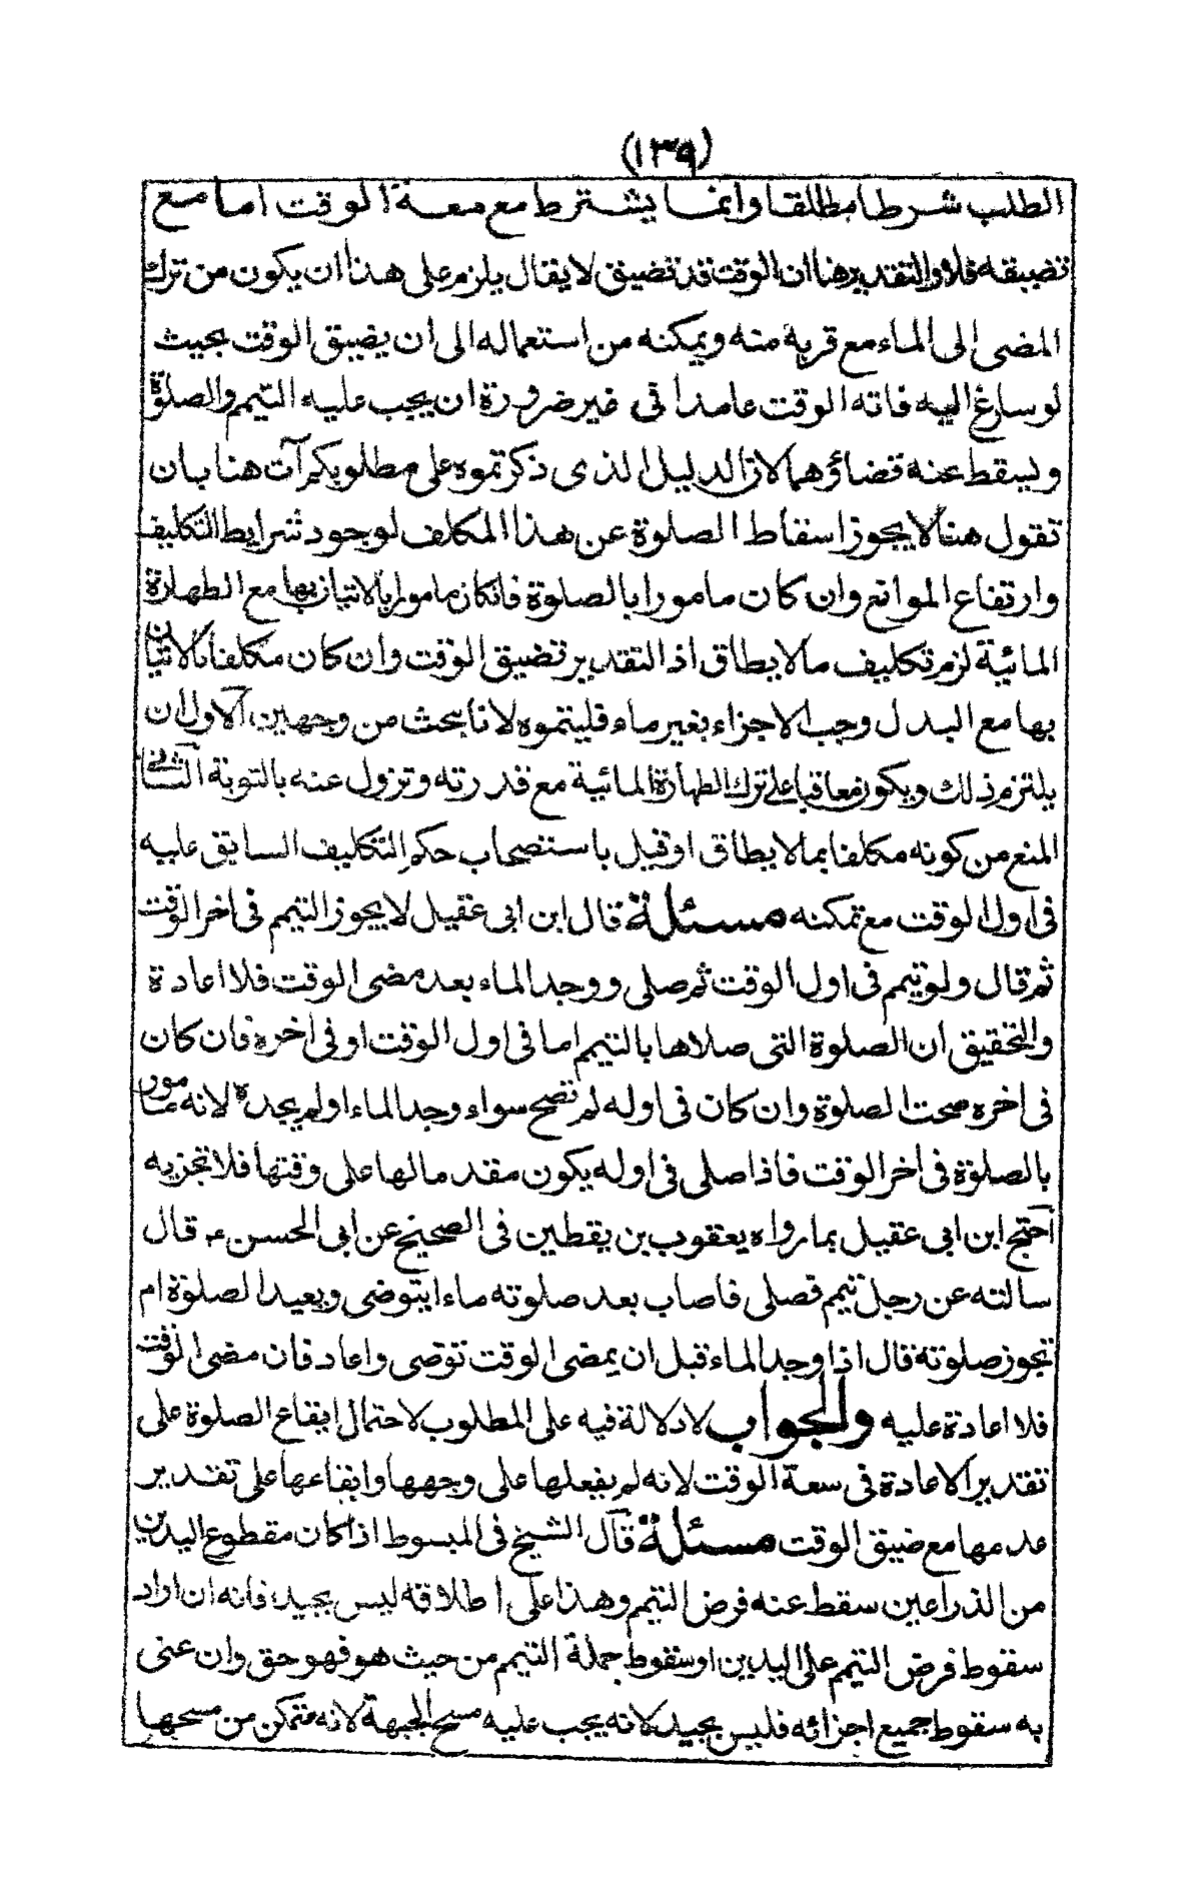 (١٣٩)
الطلب شرطا مطلقا وانما يشترط مع سعة الوقت اما مع
تضييقه فلا والتقدير هنا ان الوقت قد تضيق لا يقال يلزم على هذا ان يكون من ترك
المضى الى الماء مع قربه منه ويمكنه من استعماله الى ان يضيق الوقت بحيث
لو سارع اليه فاته الوقت عامدا فى غير ضرورة ان يجب عليه التيمم والصلوة
ويسقط عنه قضاؤهما لان الدليل الذى ذكرتموه على مطلوبكم آت هنا بان
تقول هنا لا يجوز اسقاط الصلوة عن هذا المكلف لوجود شرايط التكليف
وارتفاع الموانع وان كان مامورا بالصلوة فان كان مامورا بالاتيان بها مع الطهارة
المائية لزم تكليف ما لا يطاق اذ التقدير تضيق الوقت وان كان مكلفا بالاتيان
بها مع البدل وجب الاجزاء بغير ماء فليتموه لانا بحث من وجهين الاول ان
يلتزم ذلك ويكون معاقبا على ترك الطهارة المائية مع قدرته وتزول عنه بالتوبة الثانى
المنع من كونه مكلفا بما لا يطاق او قيل باستصحاب حكم التكليف السابق عليه
فى اول الوقت مع تمكنه مسئلة قال ابن ابى عقيل لا يجوز التيمم فى اخر الوقت
ثم قال ولو تيمم فى اول الوقت ثم صلى ووجد الماء بعد مضى الوقت فلا اعادة
والتحقيق ان الصلوة التى صلاها بالتيمم اما فى اول الوقت او فى اخره فان كان
فى اخره صحت الصلوة وان كان فى اوله لم تصح سواء وجد الماء او لم يجده لانه مامور
بالصلوة فى اخر الوقت فاذا صلى فى اوله يكون مقدما لها على وقتها فلا تجزيه
احتج ابن ابى عقيل بما رواه يعقوب بن يقطين فى الصحيح عن ابى الحسن ع قال
سالته عن رجل تيمم فصلى فاصاب بعد صلوته ماء ايتوضى ويعيد الصلوة ام
تجوز صلوته قال اذا وجد الماء قبل ان يمضى الوقت توضى واعاد فان مضى الوقت
فلا اعادة عليه والجواب لا دلالة فيه على المطلوب لاحتمال ايقاع الصلوة على
تقدير الاعادة فى سعة الوقت لانه لم يفعلها على وجهها وايقاعها على تقدير
عدمها مع ضيق الوقت مسئلة قال الشيخ فى المبسوط اذا كان مقطوع اليدين
من الذراعين سقط عنه فرض التيمم وهذا على اطلاقه ليس بجيد فانه ان اراد
سقوط فرض التيمم على اليدين او سقوط جملة التيمم من حيث هو فهو حق وان عنى
به سقوط جميع اجزائه فليس بجيد لانه يجب عليه مسح الجبهة لانه متمكن من مسحها